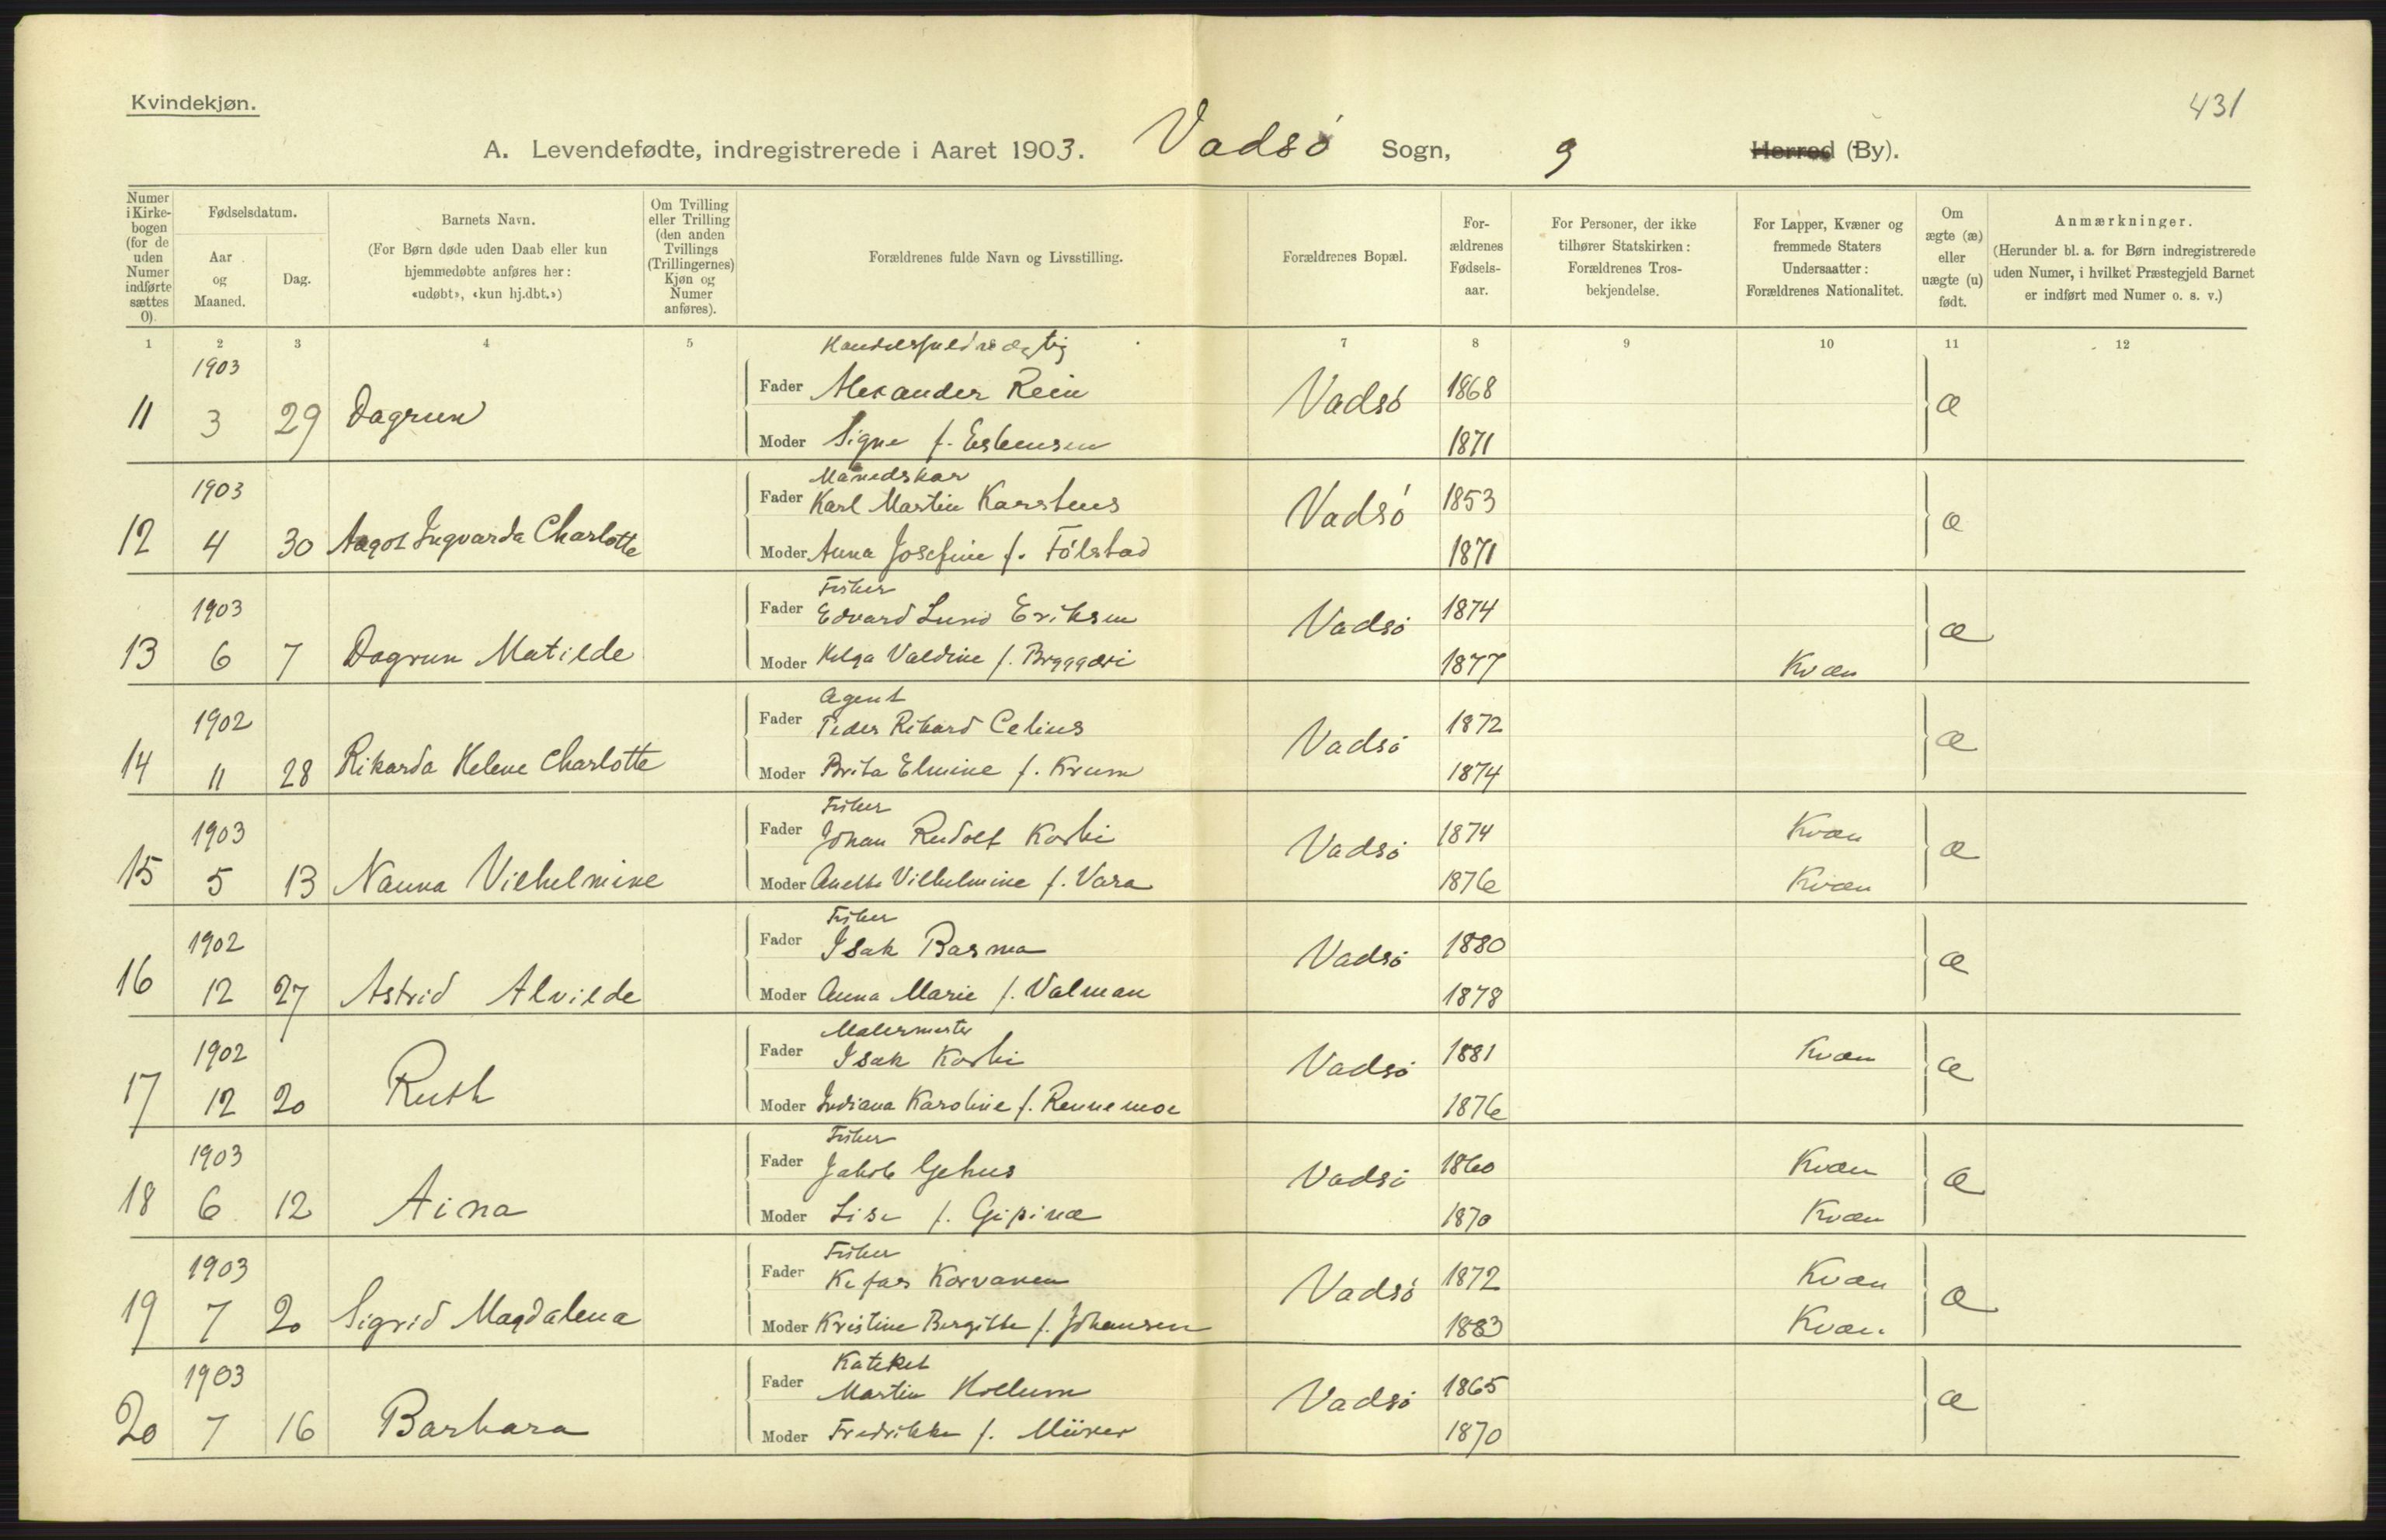 Kvindekjøn.
431
A. Levendefødte, indregistrerede i Aaret 1903. Vadsø Sogn, 9 Herred (By).
Numer i Kirkebogen (for de uden Numer indførte sættes 0).
Fødselsdatum.
Aar og Maaned.
Dag.
Barnets Navn.
(For Børn døde uden Daab eller kun hjemmedøbte anføres her: «udøbt», «kun hj.dbt.»)
Om Tvilling eller Trilling (den anden Tvillings (Trillingernes) Kjøn og Numer anføres).
Forældrenes fulde Navn og Livsstilling.
Forældrenes Bopæl.
Forældrenes Fødselsaar.
For Personer, der ikke tilhører Statskirken: Forældrenes Trosbekjendelse.
For Lapper, Kvæner og fremmede Staters Undersaatter: Forældrenes Nationalitet.
Om ægte (æ) eller uægte (u) født.
Anmærkninger.
(Herunder bl. a. for Børn indregistrerede uden Numer, i hvilket Præstegjeld Barnet er indført med Numer o. s. v.)
1 2 3 4 5 7 8 9 10 11 12
Handelsfuldmægtig
11 1903 3 29 Dagrun Fader Alexander Rein Vadsø 1868 æ
Moder Signe f. Esbensen 1871
Maanedskar
12 1903 4 30 Aagot Ingvarda Charlotte Fader Karl Martin Karstens Vadsø 1853 æ
Moder Anna Josefine f. Følstad 1871
Fisker
13 1903 6 7 Dagrun Matilde Fader Edvard Lund Eriksen Vadsø 1874 æ
Moder Helga Valdine f. Bryggari 1877 Kvæn
Agent
14 1902 11 28 Rikarda Helene Charlotte Fader Peder Rikard Celius Vadsø 1872 æ
Moder Brita Elmine f. Krum 1874
Fisker
15 1903 5 13 Nanna Vilhelmine Fader Johan Rudolf Koski Vadsø 1874 Kvæn æ
Moder Anette Vilhelmine f. Vara 1876 Kvæn
Fisker
16 1902 12 27 Astrid Alvilde Fader Isak Basma Vadsø 1880 æ
Moder Anna Marie f. Valman 1878
Malermester
17 1902 12 20 Ruth Fader Isak Koski Vadsø 1881 Kvæn æ
Moder Indiana Karoline f. Rennemoe 1876
Fisker
18 1903 6 12 Aina Fader Jakob Gehus Vadsø 1860 Kvæn æ
Moder Lise f. Gipinæ 1870 Kvæn
Fisker
19 1903 7 20 Sigrid Magdalena Fader Kefas Korvanen Vadsø 1872 Kvæn æ
Moder Kristine Bergitte f. Johansen 1883 Kvæn
Kateket
20 1903 7 16 Barbara Fader Martin Hollum Vadsø 1865 æ
Moder Fredrikke f. Mürer 1870